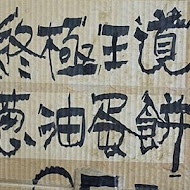 終極王道
葱油蛋餅